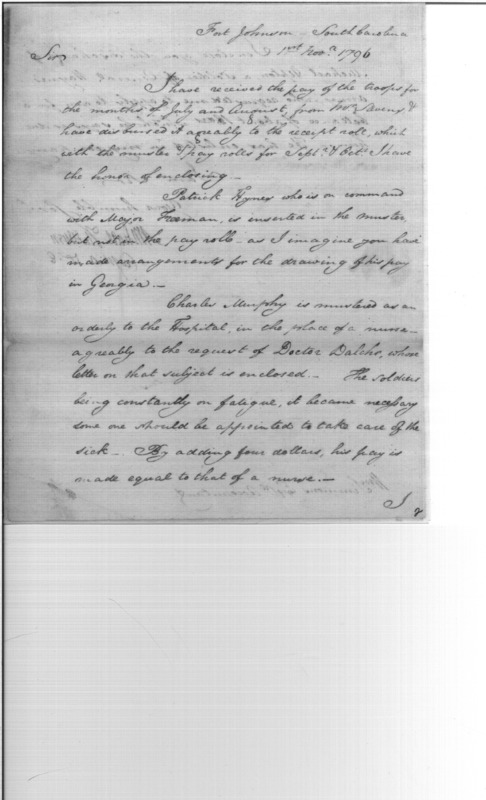 Fort Johnson South Carolina
1st Novr. 1796
Sir,
I have received the pay of the troops for
the months of July and August, from Mr &
have disbursed it agreably to the receipt roll, which
with the muster & pay rolls for Sept. & Octr. I have
the honor of enclosing —
Patrick Hynes who is on command
with Major Freeman, is inserted in the muster
but not in the pay rolls — as I imagine you have
made arrangements for the drawing of his pay
in Georgia. —
Charles Murphy is mustered as an
orderly to the Hospital, in the place of a nurse —
agreably to the request of Doctor Dalcho, whose
letter on that subject is enclosed. — The soldiers
being constantly on fatigue, it became necessary
some one should be appointed to take care of the
sick —. By adding four dollars, his pay is
made equal to that of a nurse. —
I